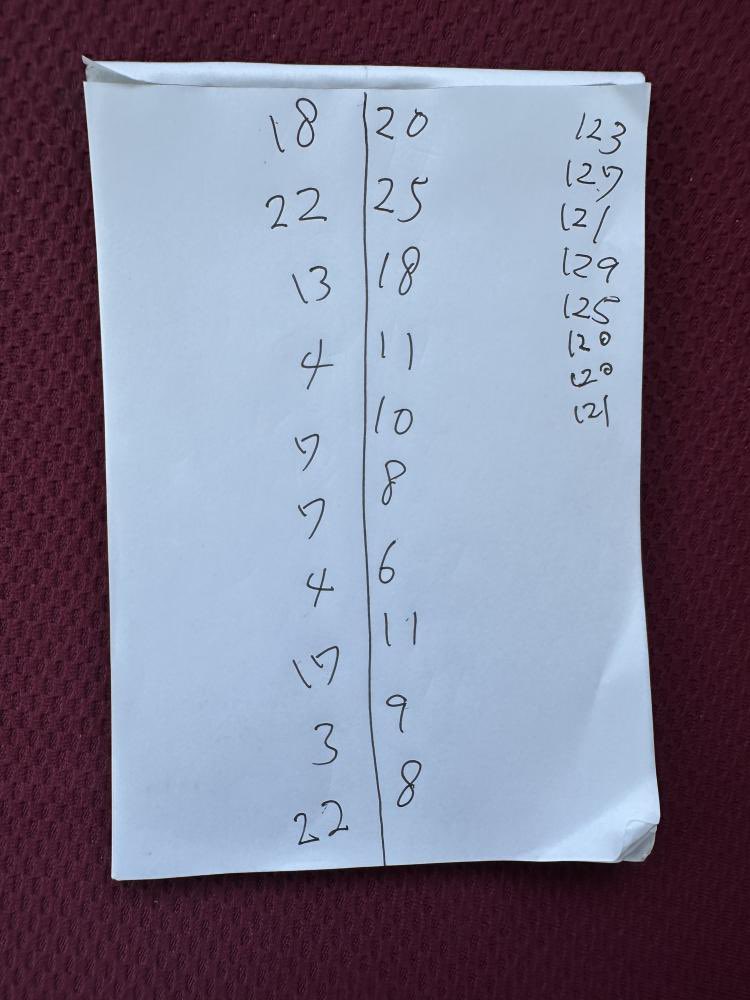 18 20 123
127
22 25 121
13 18 129
125
4 11 120
120
10 121
7 8
7
4 6
17 11
3 9
22 8